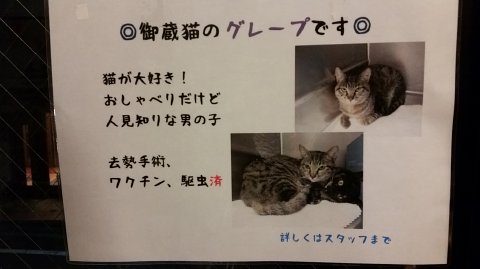 ◎御蔵猫のグレープです◎
猫が大好き！
おしゃべりだけど
人見知りな男の子
去勢手術、
ワクチン、駆虫済
詳しくはスタッフまで